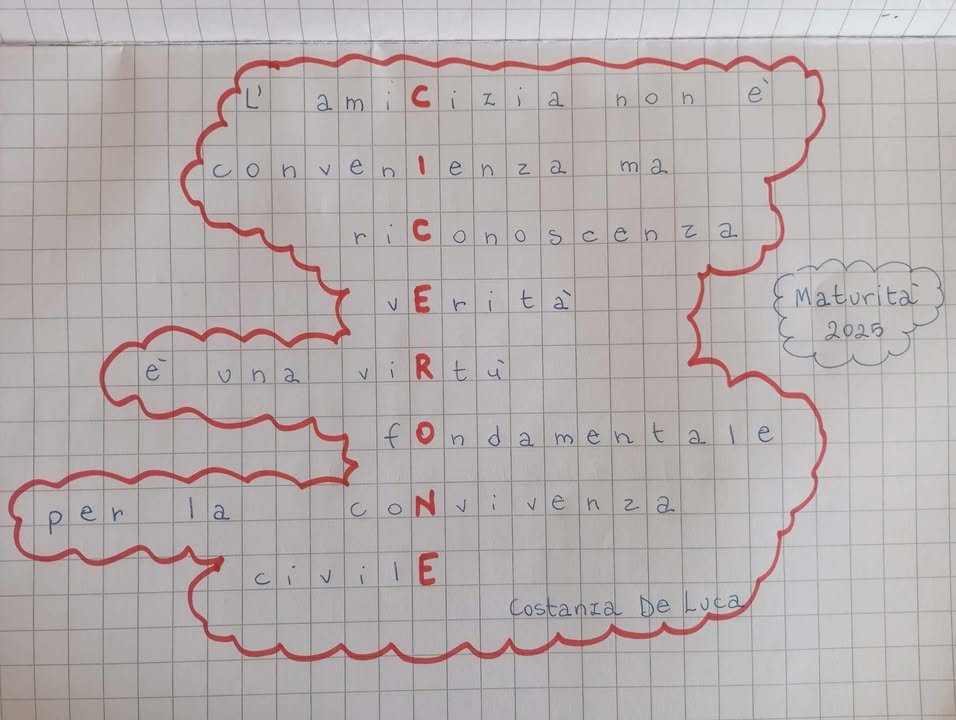 L' amiCizia non è
convenIenza ma
riConoscenza
vErità
è una viRtù
fOndamentale
per la coNvivenza
civilE
Costanza De Luca
Maturità
2025